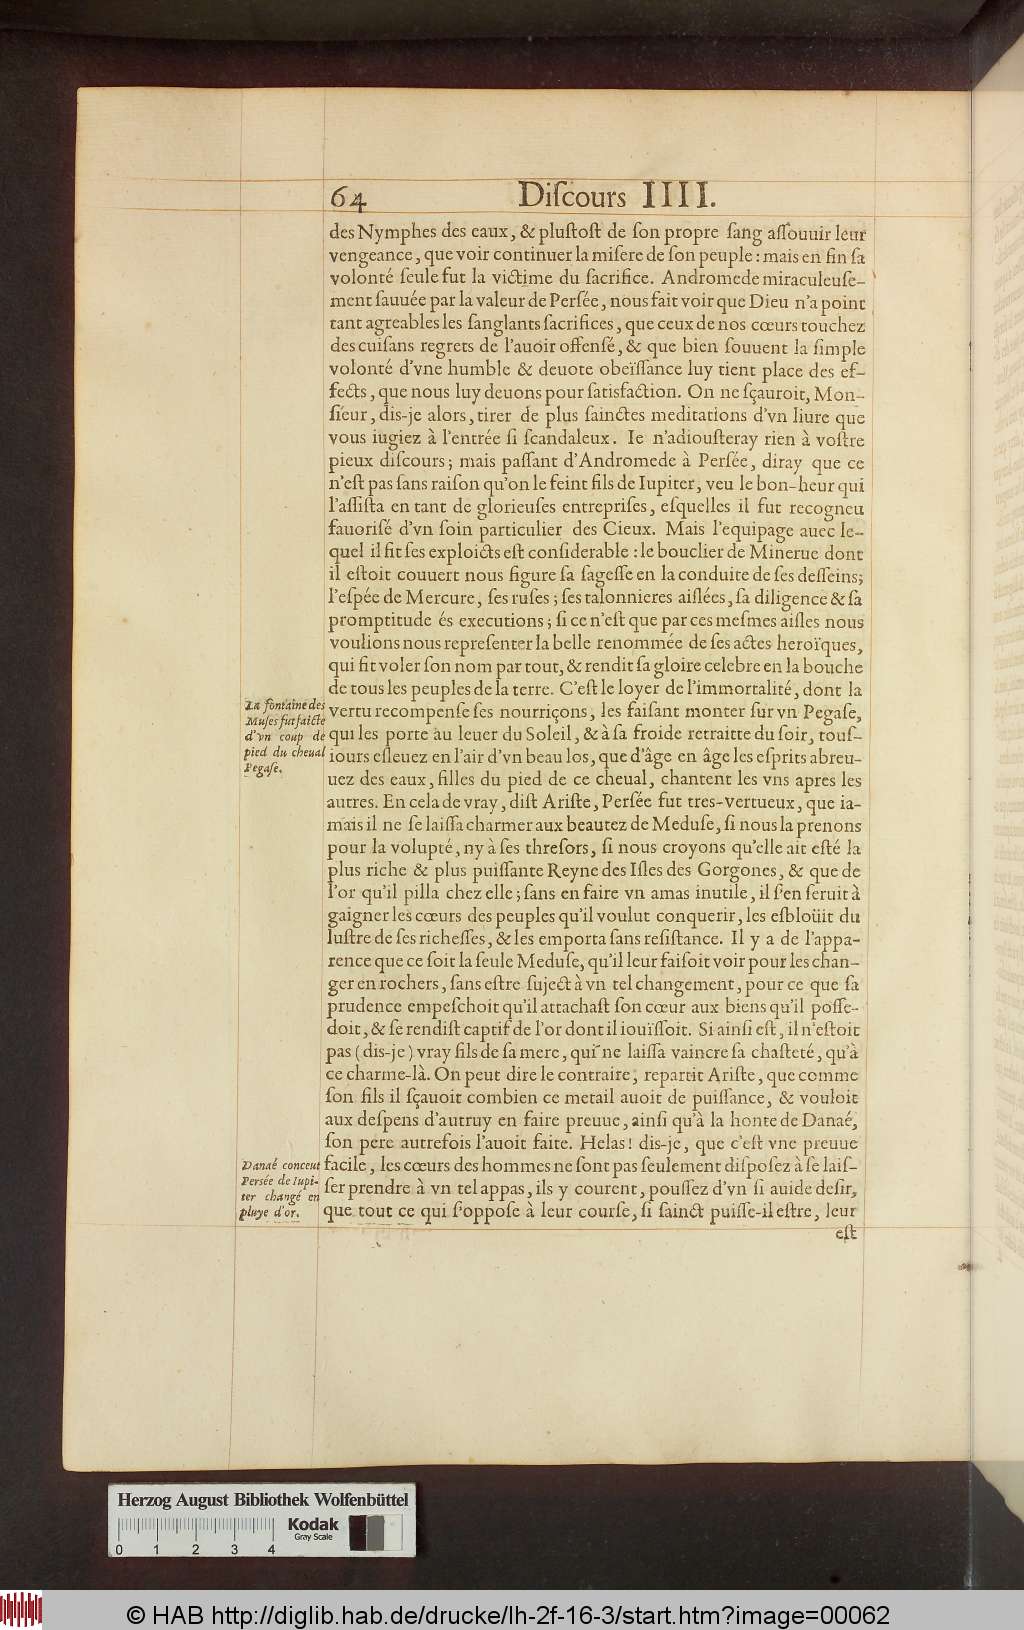 64 Diſcours IIII.
des Nymphes des eaux, & pluſtoſt de ſon propre ſang aſſouuir leur
vengeance, que voir continuer la miſere de ſon peuple : mais en fin ſa
volonté ſeule fut la victime du ſacrifice. Andromede miraculeuſe-
ment ſauuée par la valeur de Perſée, nous fait voir que Dieu n'a point
tant agreables les ſanglants ſacrifices, que ceux de nos cœurs touchez
des cuiſans regrets de l'auoir offenſé, & que bien ſouuent la ſimple
volonté d'vne humble & deuote obeïſſance luy tient place des ef-
fects, que nous luy deuons pour ſatisfaction. On ne ſçauroit, Mon-
ſieur, dis-je alors, tirer de plus ſainctes meditations d'vn liure que
vous iugiez à l'entrée ſi ſcandaleux. Ie n'adiouſteray rien à voſtre
pieux diſcours; mais paſſant d'Andromede à Perſée, diray que ce
n'eſt pas ſans raiſon qu'on le feint fils de Iupiter, veu le bon-heur qui
l'aſſiſta en tant de glorieuſes entrepriſes, eſquelles il fut recogneu
fauoriſé d'vn ſoin particulier des Cieux. Mais l'equipage auec le-
quel il fit ſes exploicts eſt conſiderable : le bouclier de Minerue dont
il eſtoit couuert nous figure ſa ſageſſe en la conduite de ſes deſſeins;
l'eſpée de Mercure, ſes ruſes; ſes talonnieres aiſlées, ſa diligence & ſa
promptitude és executions; ſi ce n'eſt que par ces meſmes aiſles nous
voulions nous repreſenter la belle renommée de ſes actes heroïques,
qui fit voler ſon nom par tout, & rendit ſa gloire celebre en la bouche
de tous les peuples de la terre. C'eſt le loyer de l'immortalité, dont la
vertu recompenſe ſes nourriçons, les faiſant monter ſur vn Pegaſe,
qui les porte au leuer du Soleil, & à ſa froide retraitte du ſoir, touſ-
iours eſleuez en l'air d'vn beau los, que d'âge en âge les eſprits abreu-
uez des eaux, filles du pied de ce cheual, chantent les vns apres les
autres. En cela de vray, diſt Ariſte, Perſée fut tres-vertueux, que ia-
mais il ne ſe laiſſa charmer aux beautez de Meduſe, ſi nous la prenons
pour la volupté, ny à ſes threſors, ſi nous croyons qu'elle ait eſté la
plus riche & plus puiſſante Reyne des Iſles des Gorgones, & que de
l'or qu'il pilla chez elle; ſans en faire vn amas inutile, il ſ'en ſeruit à
gaigner les cœurs des peuples qu'il voulut conquerir, les eſbloüit du
luſtre de ſes richeſſes, & les emporta ſans reſiſtance. Il y a de l'appa-
rence que ce ſoit la ſeule Meduſe, qu'il leur faiſoit voir pour les chan-
ger en rochers, ſans eſtre ſuject à vn tel changement, pour ce que ſa
prudence empeſchoit qu'il attachaſt ſon cœur aux biens qu'il poſſe-
doit, & ſe rendiſt captif de l'or dont il iouïſſoit. Si ainſi eſt, il n'eſtoit
pas (dis-je) vray fils de ſa mere, qui ne laiſſa vaincre ſa chaſteté, qu'à
ce charme-là. On peut dire le contraire, repartit Ariſte, que comme
ſon fils il ſçauoit combien ce metail auoit de puiſſance, & vouloit
aux deſpens d'autruy en faire preuue, ainſi qu'à la honte de Danaé,
ſon pere autrefois l'auoit faite. Helas! dis-je, que c'eſt vne preuue
facile, les cœurs des hommes ne ſont pas ſeulement diſpoſez à ſe laiſ-
ſer prendre à vn tel appas, ils y courent, pouſſez d'vn ſi auide deſir,
que tout ce qui ſ'oppoſe à leur courſe, ſi ſainct puiſſe-il eſtre, leur
eſt
La fontaine des
Muſes fut faicte
d'vn coup de
pied du cheual
Pegaſe.
Danaé conceut
Perſée de Iupi-
ter changé en
pluye d'or.
Herzog August Bibliothek Wolfenbüttel
Kodak
Gray Scale
0 1 2 3 4
© HAB http://diglib.hab.de/drucke/lh-2f-16-3/start.htm?image=00062